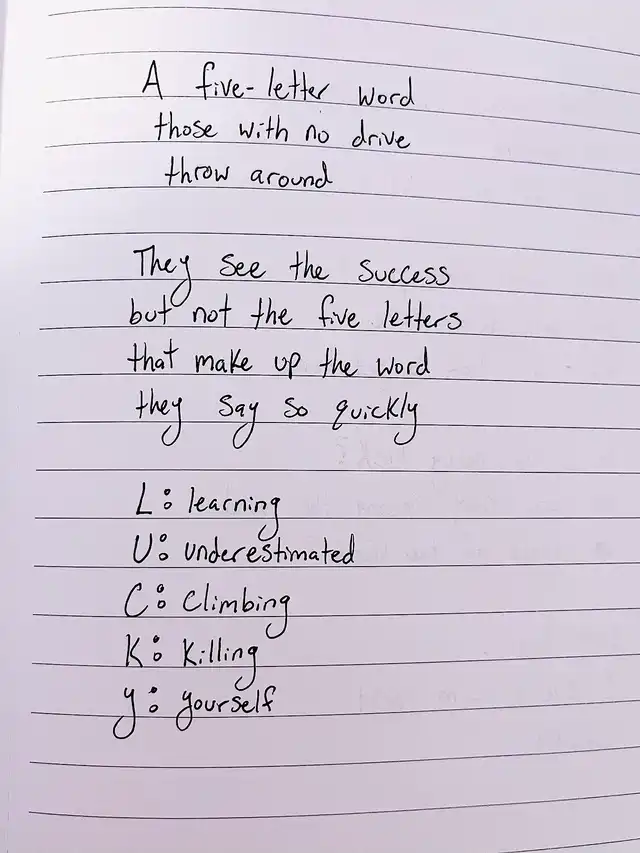 A five-letter word
those with no drive
throw around
They see the success
but not the five letters
that make up the word
they say so quickly
L: learning
U: underestimated
C: climbing
K: killing
y: yourself